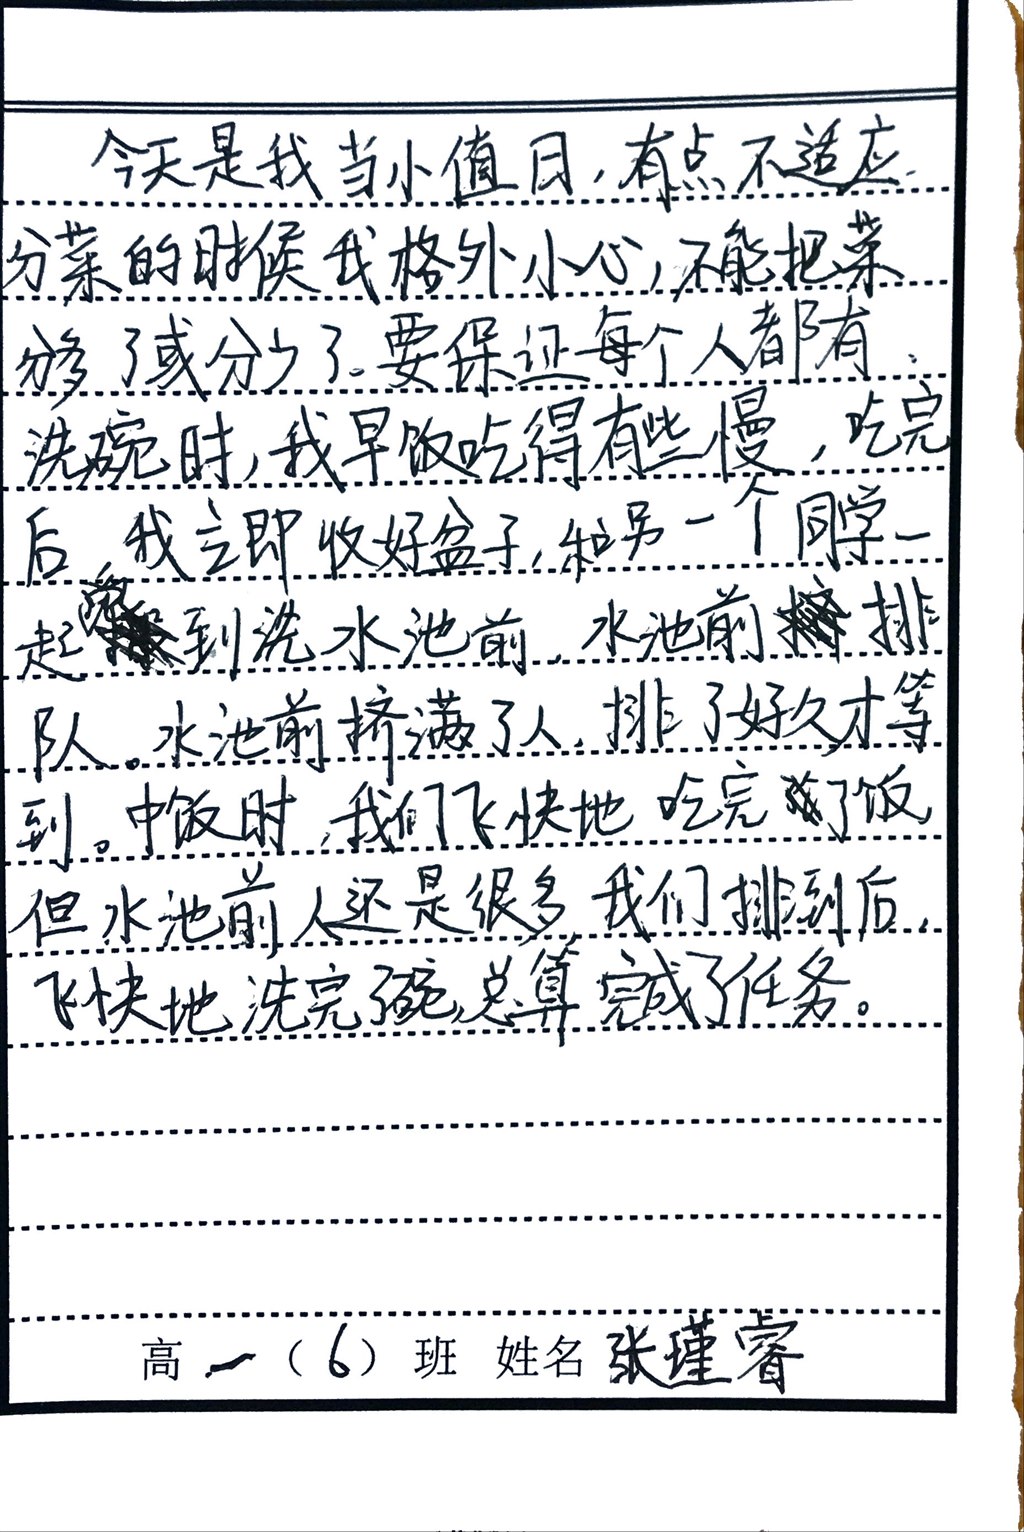 今天是我当小值日，有点不适应.
分菜的时候我格外小心，不能把菜
分多了或分少了.要保证每个人都有.
洗碗时，我早饭吃得有些慢，吃完
后，我立即收好盆子，和另一个同学一
起 到洗水池前，水池前 排
队。水池前挤满了人，排了好久才等
到。中饭时，我们飞快地吃完了饭
但水池前人还是很多我们排到后，
飞快地洗完了碗，总算完成了任务。
高一（6）班 姓名 张瑾睿